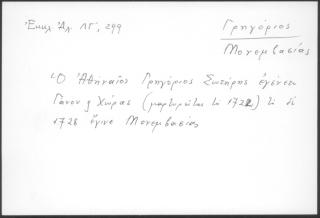 Ἐκκλ. Ἀλ. ΛΓ΄, 299
Γρηγόριος
Μονεμβασίας
Ὁ Ἀθηναῖος Γρηγόριος Σωτήρης ἐγένετο
Γάνου κ Χώρας (μαρτυρεῖται τῷ 1722) τῷ δὲ
1728 ἔγινε Μονεμβασίας